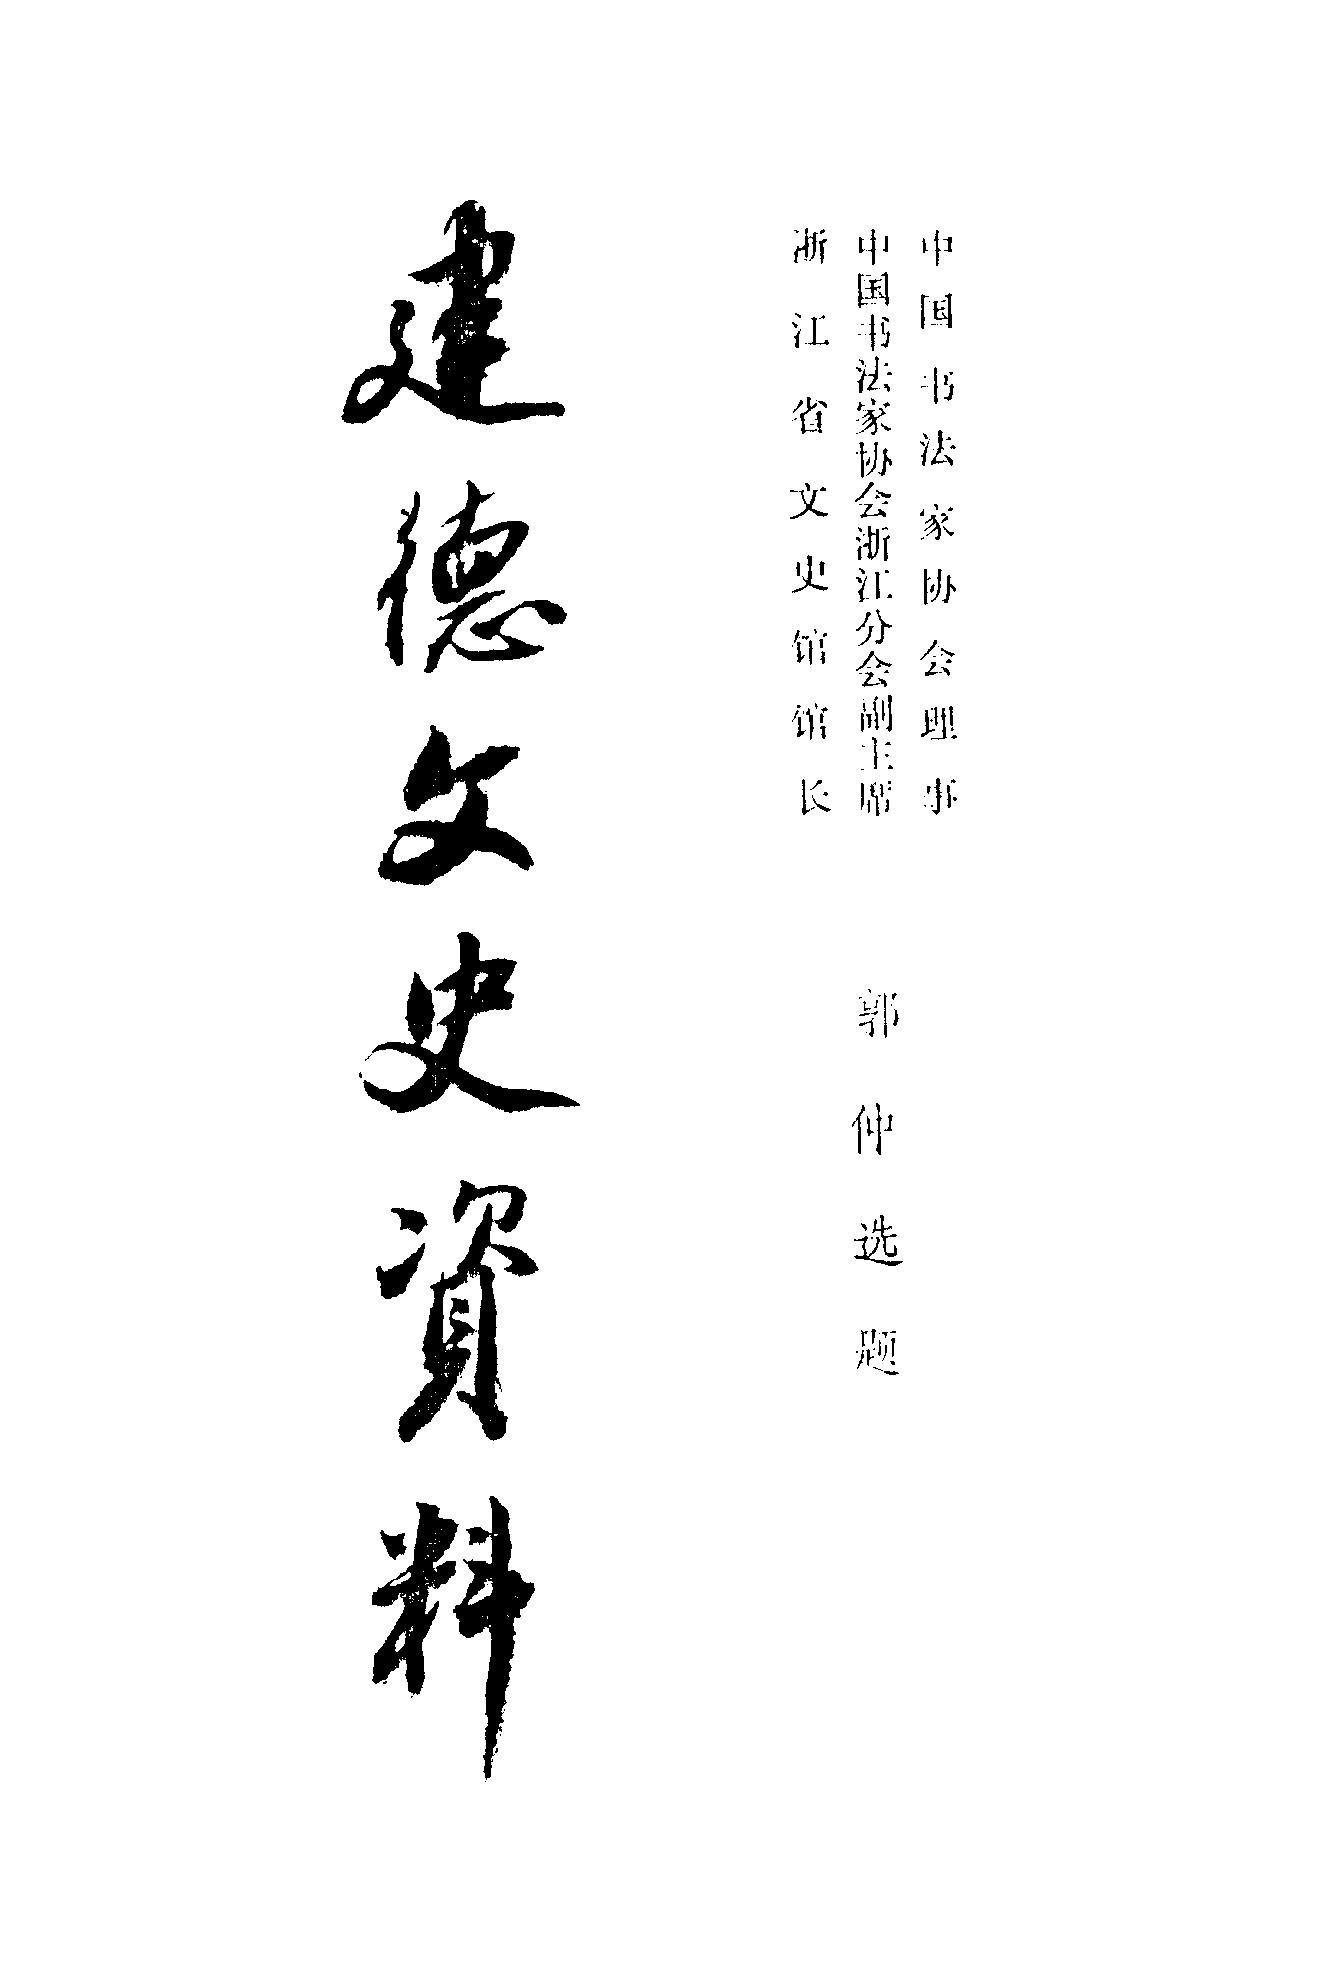 中国书法家协会理事
中国书法家协会浙江分会副主席
浙江省文史馆馆长
郭仲选题
建德文史資料